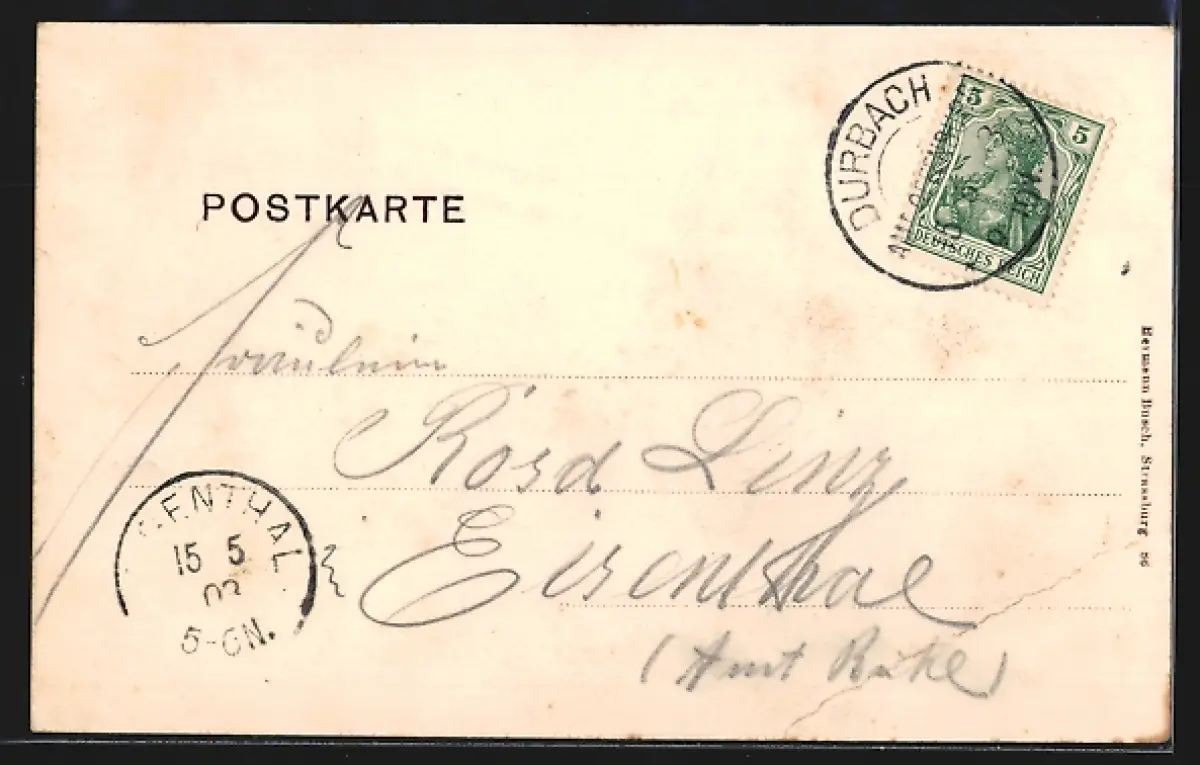 POSTKARTE
DURBACH
5 5
DEUTSCHES REICH
Fräulein
Rosa Linz
Eisenthal
(Amt Bühl)
ENTHAL
15 5
03
5-6N.
Hermann Busch, Strassburg 86